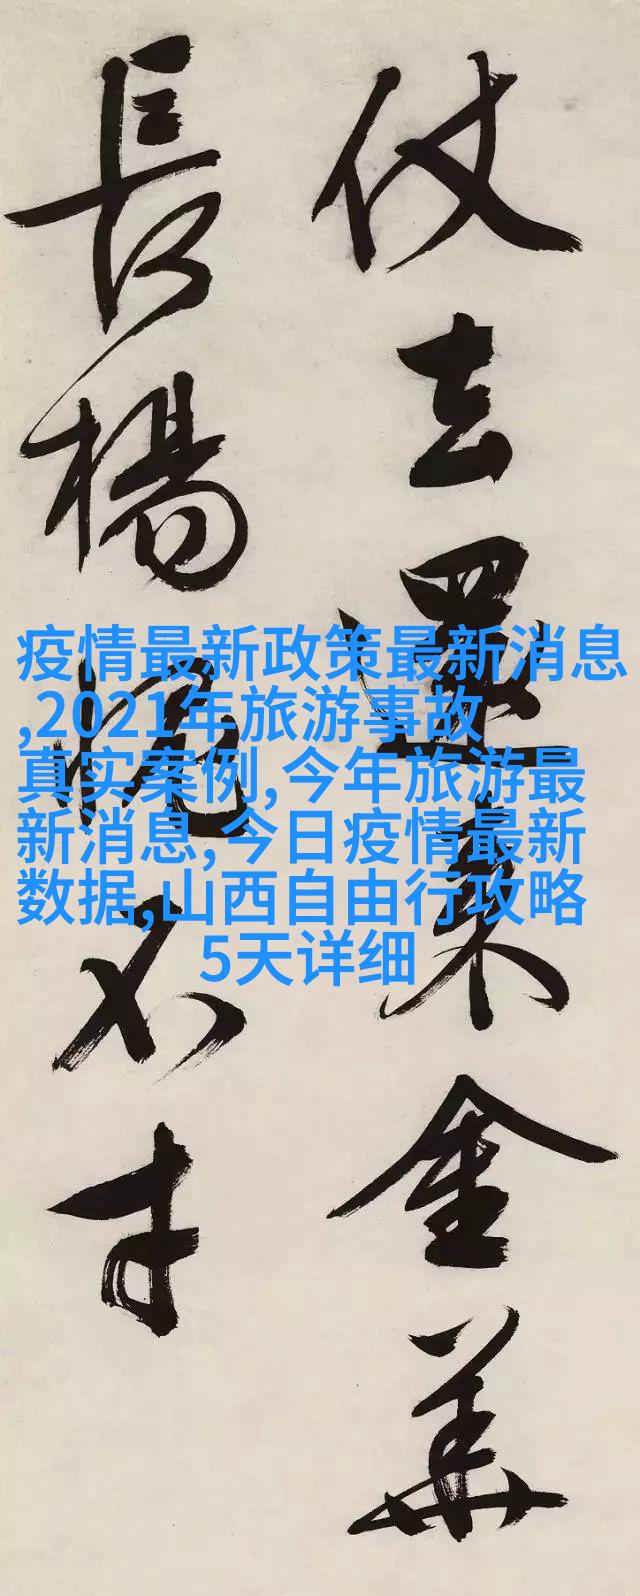 仗去還來金華
長楊愧不才
疫情最新政策最新消息
,2021年旅游事故
真实案例,今年旅游最
新消息,今日疫情最新
数据,山西自由行攻略
5天详细